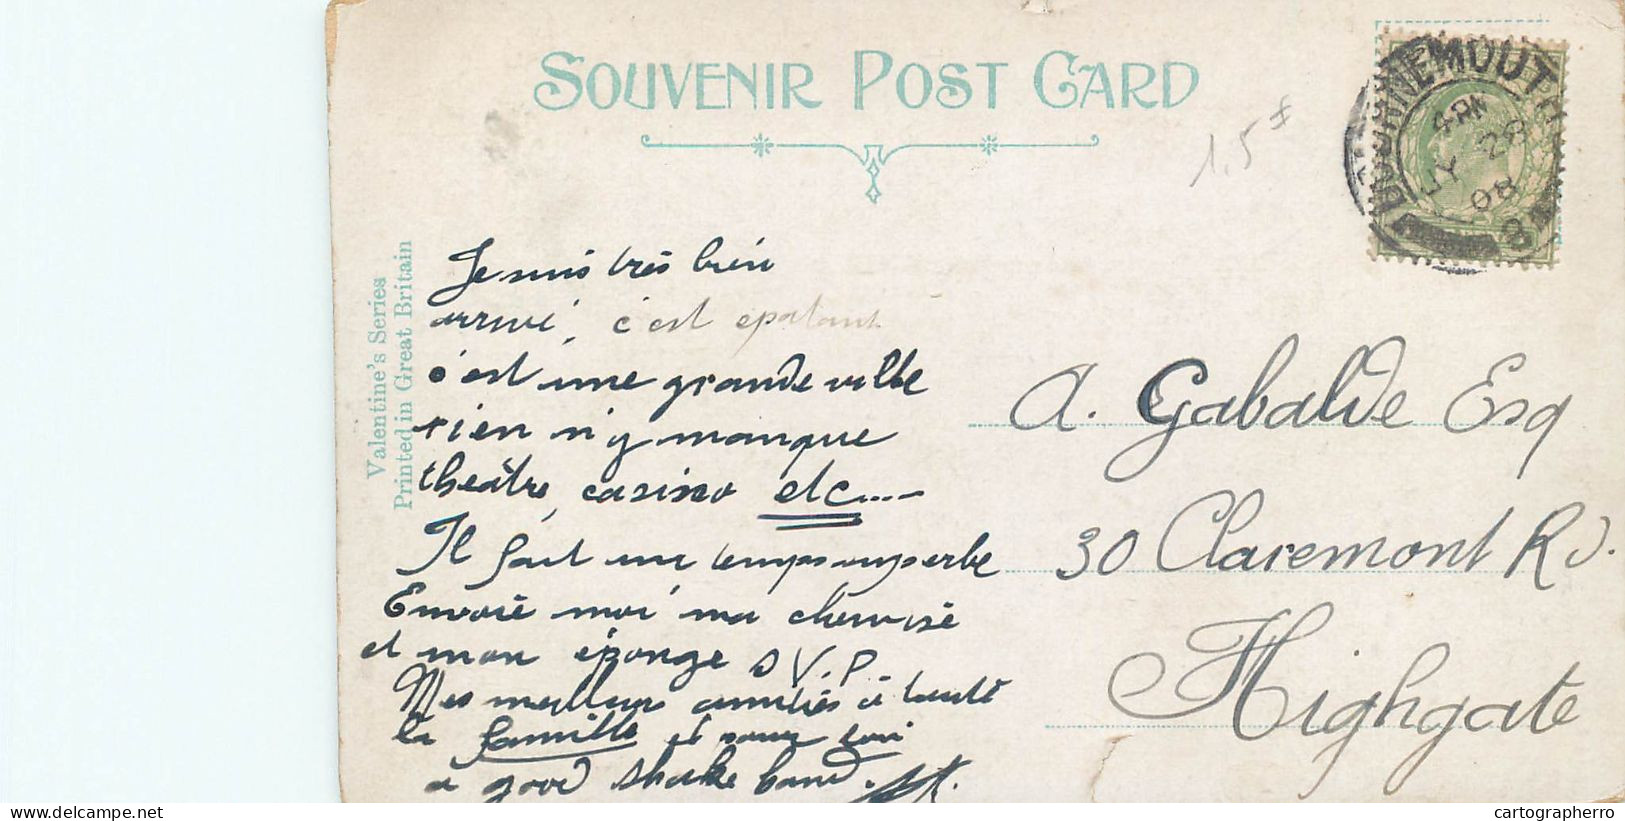 SOUVENIR POST CARD
1.5
BOURNEMOUTH
JY 28
08
Valentine's Series
Printed in Great Britain
Je suis très bien
arrivé, c'est epatant
c'est une grande ville
rien n'y manque
theâtre, casino etc....
Il fait un temps superbe
Envoie moi ma chemise
et mon éponge S V P.
Mes meilleurs amitiés à toute
la famille et pour toi
a good shake hand.
A. Gabalde Esq
30 Claremont Rd.
Highgate
cartographerro